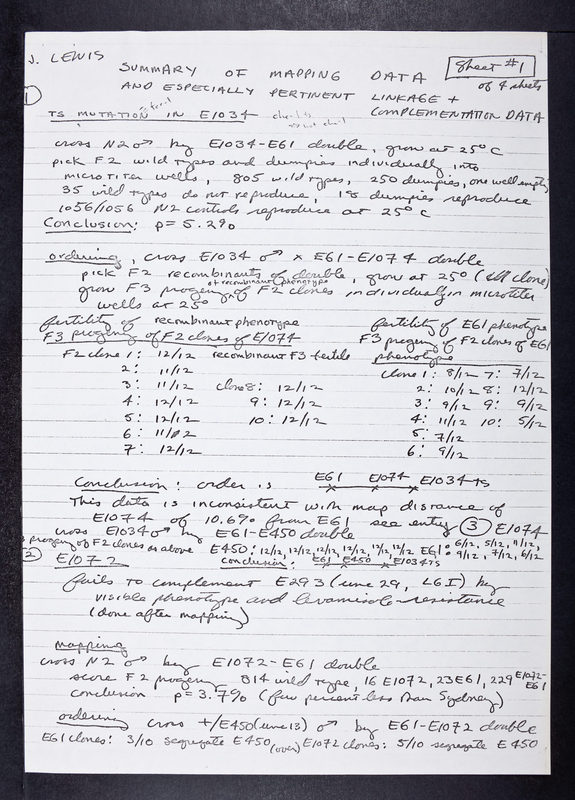 J. LEWIS
SUMMARY OF MAPPING DATA
AND ESPECIALLY PERTINENT LINKAGE +
COMPLEMENTATION DATA
Sheet #1
of 4 sheets
1
TS MUTATION IN E1034
cross N2 ♂ by E1034-E61 double, grow at 25°C
pick F2 wild types and dumpies individually into
microtiter wells, 805 wild types, 250 dumpies, one well empty
35 wild types do not reproduce, 18 dumpies reproduce
1056/1056 N2 controls reproduce at 25°C
Conclusion: p=5.2%
ordering, cross E1034 ♂ x E61-E1074 double
pick F2 recombinants of double, grow at 25° (clone)
of recombinant phenotype
grow F3 progeny of F2 clones individually in microtiter
wells at 25°
fertility of recombinant phenotype
F3 progeny of F2 clones of E1074
F2 clone 1: 12/12 recombinant F3 fertile
2: 11/12
3: 11/12 clone 8: 12/12
4: 12/12 9: 12/12
5: 12/12 10: 12/12
6: 11/12
7: 12/12
fertility of E61 phenotype
F3 progeny of F2 clones of E61
phenotype
clone 1: 8/12 7: 7/12
2: 10/12 8: 12/12
3: 9/12 9: 9/12
4: 11/12 10: 5/12
5: 7/12
6: 9/12
Conclusion: order is E61 E1074 E1034ts
This data is inconsistent with map distance of
E1074 of 10.6% from E61 see entry 3 E1074
cross E1034 ♂ by E61-E450 double
progeny of F2 clones as above E450: 12/12, 12/12, 12/12, 12/12, 12/12, 12/12 E61: 6/12, 5/12, 11/12,
9/12, 7/12, 6/12
conclusion: E61 E450 E1034ts
2
E1072
fails to complement E293 (June 29, LG I) by
visible phenotype and levamisole-resistance
(done after mapping)
mapping
cross N2 ♂ by E1072-E61 double
score F2 progeny 814 wild type, 16 E1072, 23 E61, 229 E1072-E61
conclusion p=3.7% (few percent less than Sydney)
ordering cross +/E450 (June 13) ♂ by E61-E1072 double
E61 clones: 3/10 segregate E450 (over) E1072 clones: 5/10 segregate E450